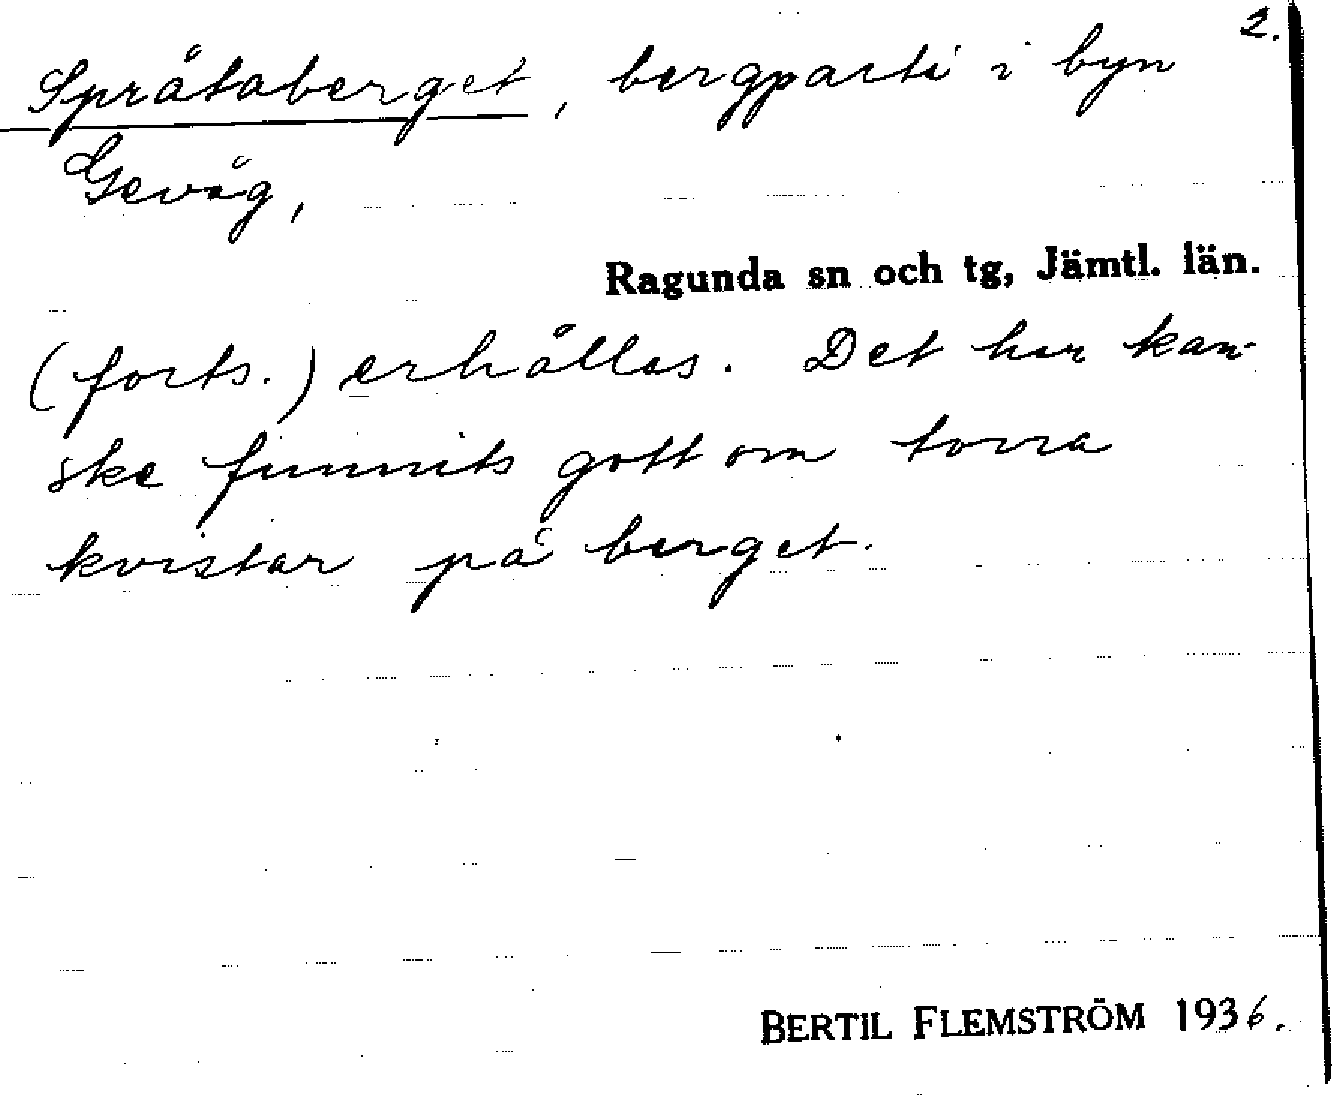 2.
Språtaberget, bergparti i byn
Gevåg,
Ragunda sn och tg, Jämtl. län.
(forts.) erhålles. Det har kan-
ske funnits gott om torra
kvistar på berget.
BERTIL FLEMSTRÖM 1936.